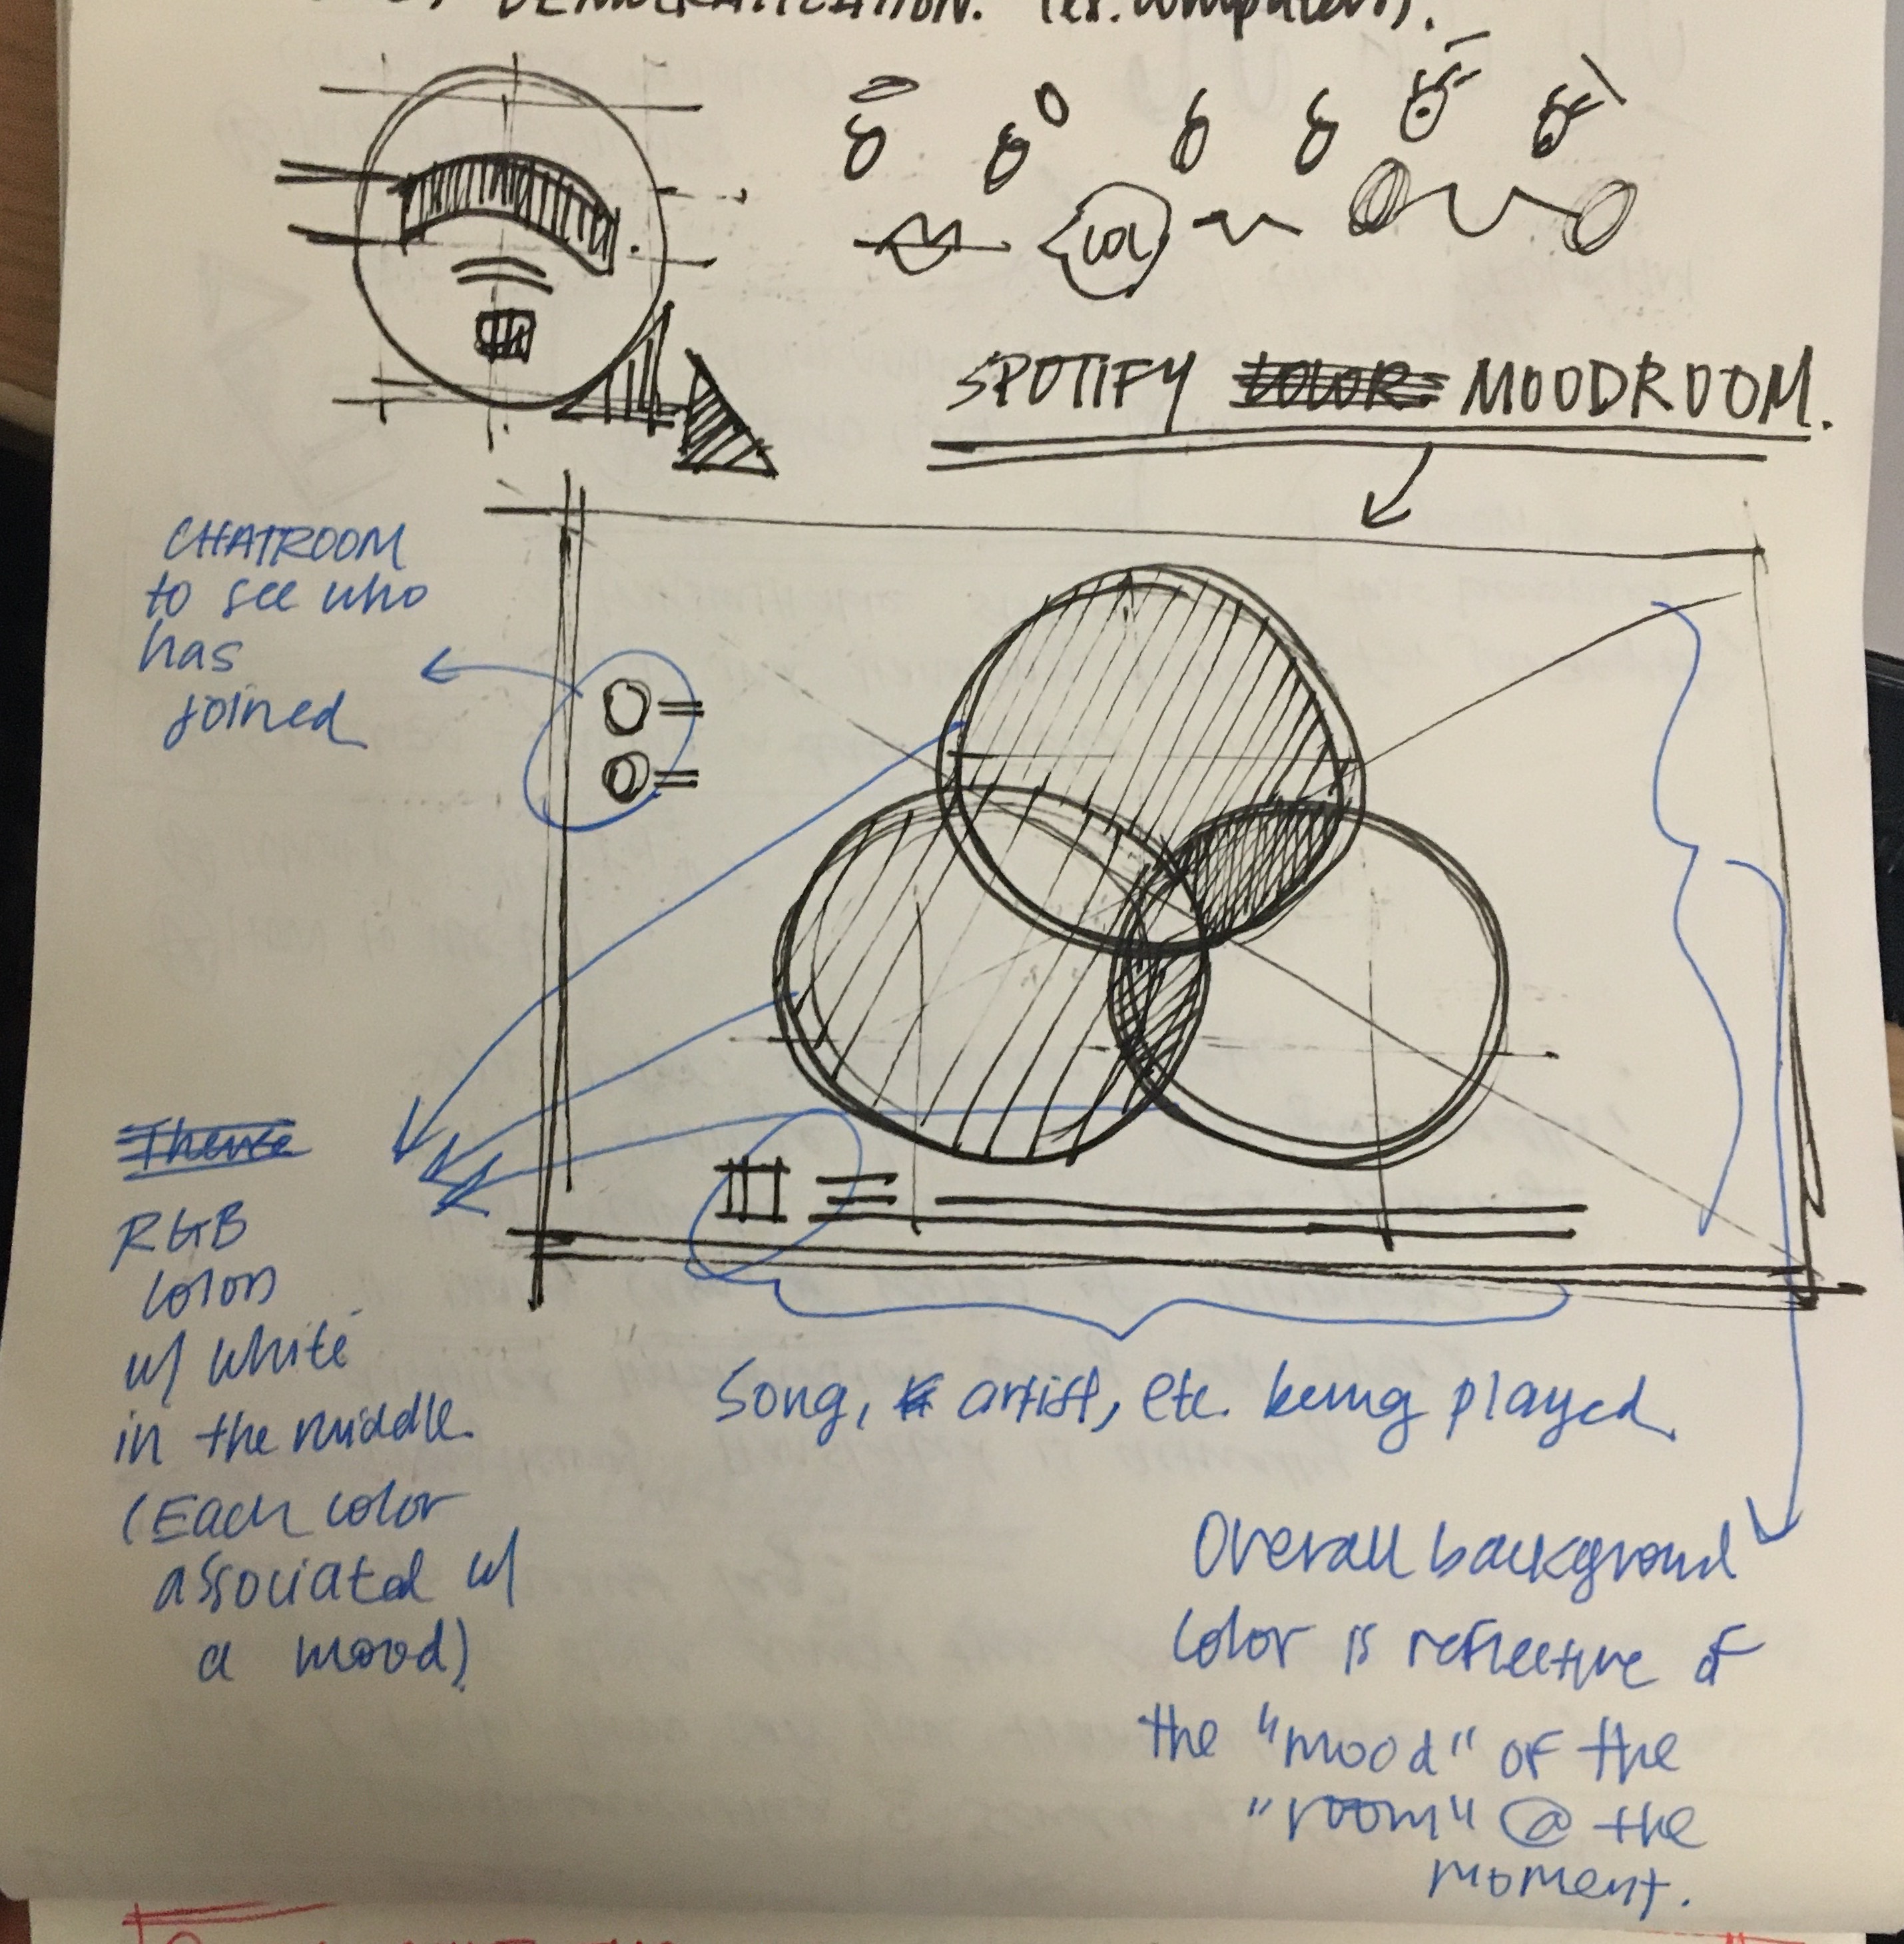 DEMOCRATIZATION. (ex. computers).
LOL
SPOTIFY COLOR MOODROOM.
CHATROOM
to see who
has
joined
Theme
RGB
colors
w/ white
in the middle.
(Each color
associated w/
a mood)
Song, artist, etc. being played
Overall background
color is reflective of
the "mood" of the
"room" @ the
moment.